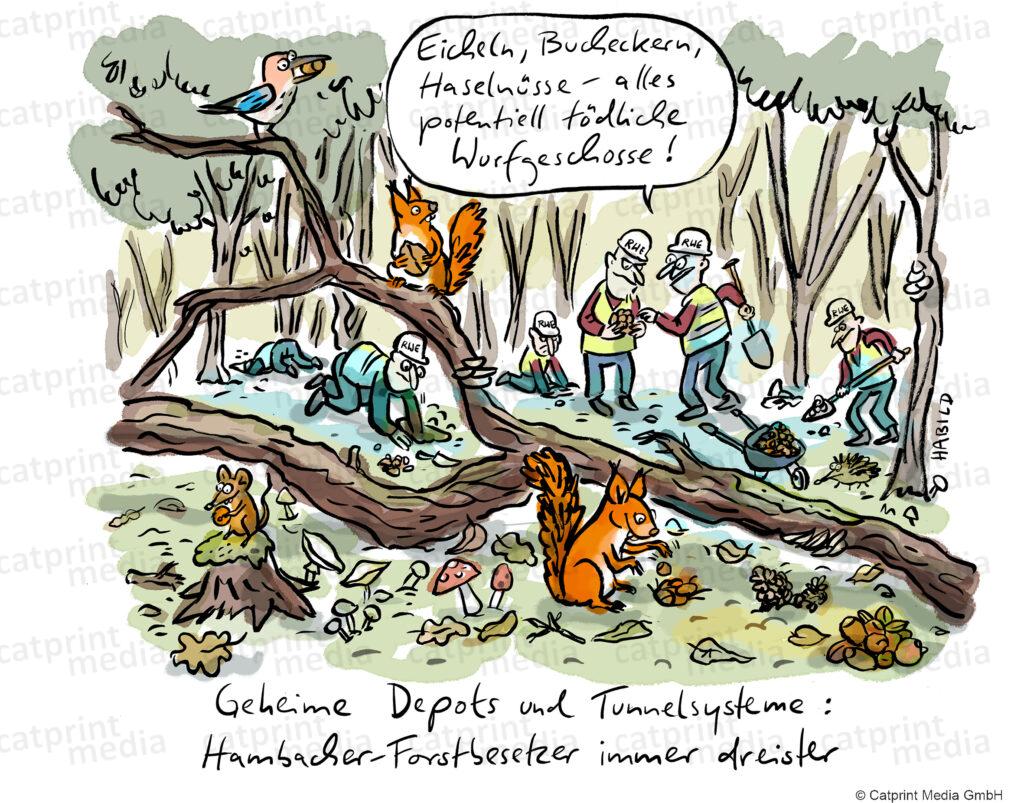 Eicheln, Bucheckern,
Haselnüsse – alles
potentiell tödliche
Wurfgeschosse!
RWE
RWE
RWE
RWE
RWE
HABILD
Geheime Depots und Tunnelsysteme:
Hambacher-Forstbesetzer immer dreister
© Catprint Media GmbH
catprint
media